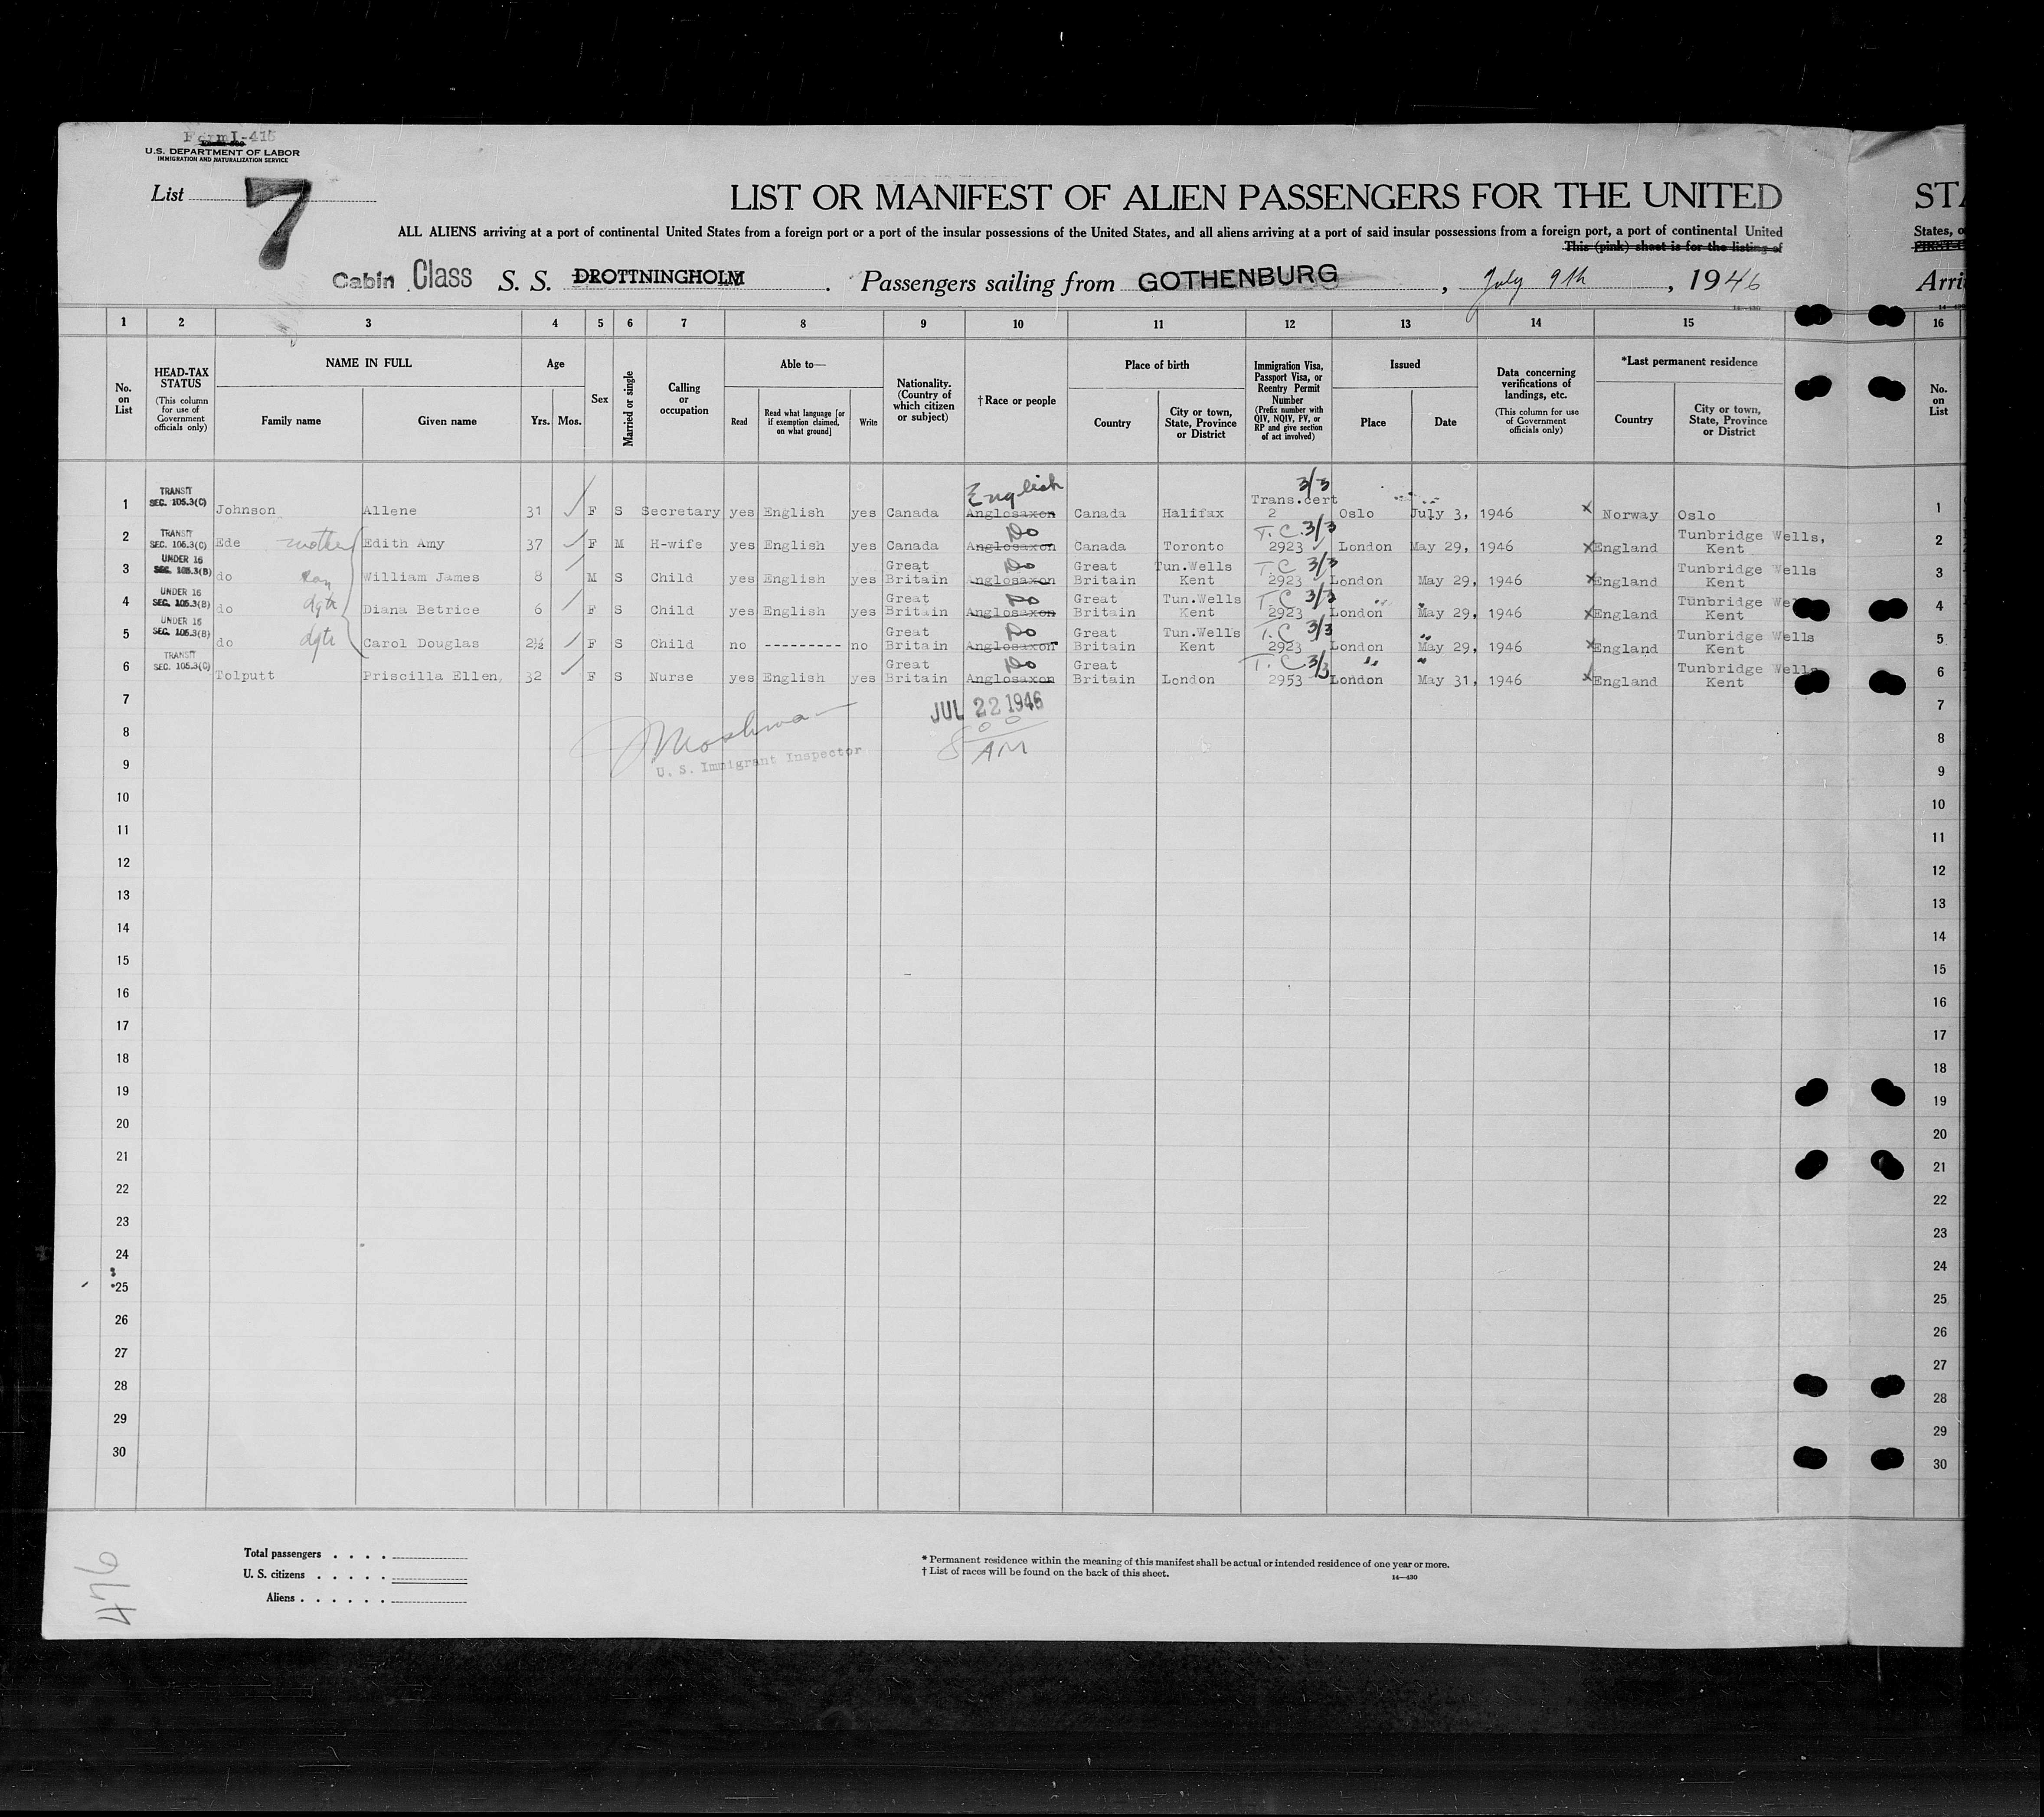 Form I-415
U.S. DEPARTMENT OF LABOR
IMMIGRATION AND NATURALIZATION SERVICE
List 7
LIST OR MANIFEST OF ALIEN PASSENGERS FOR THE UNITED
ALL ALIENS arriving at a port of continental United States from a foreign port or a port of the insular possessions of the United States, and all aliens arriving at a port of said insular possessions from a foreign port, a port of continental United
This (pink) sheet is for the listing of
Cabin Class S. S. DROTTNINGHOLM . Passengers sailing from GOTHENBURG , July 9th , 1946
STA
States, o
Arri
1 2 3 4 5 6 7 8 9 10 11 12 13 14 15 16
No. on List
HEAD-TAX STATUS (This column for use of Government officials only)
NAME IN FULL
Family name
Given name
Age
Yrs. Mos.
Sex
Married or single
Calling or occupation
Able to—
Read
Read what language [or if exemption claimed, on what ground]
Write
Nationality. (Country of which citizen or subject)
†Race or people
Place of birth
Country
City or town, State, Province or District
Immigration Visa, Passport Visa, or Reentry Permit Number (Prefix number with QIV, NQIV, PV, or RP and give section of act involved)
Issued
Place
Date
Data concerning verifications of landings, etc. (This column for use of Government officials only)
*Last permanent residence
Country
City or town, State, Province or District
No. on List
1 TRANSIT SEC. 105.3(C) Johnson Allene 31 F S Secretary yes English yes Canada English Anglosaxon Canada Halifax 3/3 Trans.cert 2 Oslo July 3, 1946 x Norway Oslo 1
2 TRANSIT SEC. 105.3(C) Ede mother Edith Amy 37 F M H-wife yes English yes Canada Do Anglosaxon Canada Toronto T.C. 3/3 2923 London May 29, 1946 x England Tunbridge Wells, Kent 2
3 UNDER 16 SEC. 105.3(B) do son William James 8 M S Child yes English yes Great Britain Do Anglosaxon Great Britain Tun.Wells Kent T.C 3/3 2923 London May 29, 1946 x England Tunbridge Wells Kent 3
4 UNDER 16 SEC. 105.3(B) do dgtr Diana Betrice 6 F S Child yes English yes Great Britain Do Anglosaxon Great Britain Tun.Wells Kent T.C 3/3 2923 London May 29, 1946 x England Tunbridge We Kent 4
5 UNDER 16 SEC. 105.3(B) do dgtr Carol Douglas 2½ F S Child no --------- no Great Britain Do Anglosaxon Great Britain Tun.Wells Kent T.C 3/3 2923 London May 29, 1946 x England Tunbridge Wells Kent 5
6 TRANSIT SEC. 105.3(C) Tolputt Priscilla Ellen, 32 F S Nurse yes English yes Great Britain Do Anglosaxon Great Britain London T.C. 3/3 2953 London May 31, 1946 x England Tunbridge Wells Kent 6
7 JUL 22 1946 7
8 8 00 AM 8
U. S. Immigrant Inspector
9 9
10 10
11 11
12 12
13 13
14 14
15 15
16 16
17 17
18 18
19 19
20 20
21 21
22 22
23 23
24 24
25 25
26 26
27 27
28 28
29 29
30 30
Total passengers . . . .
U. S. citizens . . . . .
Aliens . . . . . .
* Permanent residence within the meaning of this manifest shall be actual or intended residence of one year or more.
† List of races will be found on the back of this sheet.
14—430
476